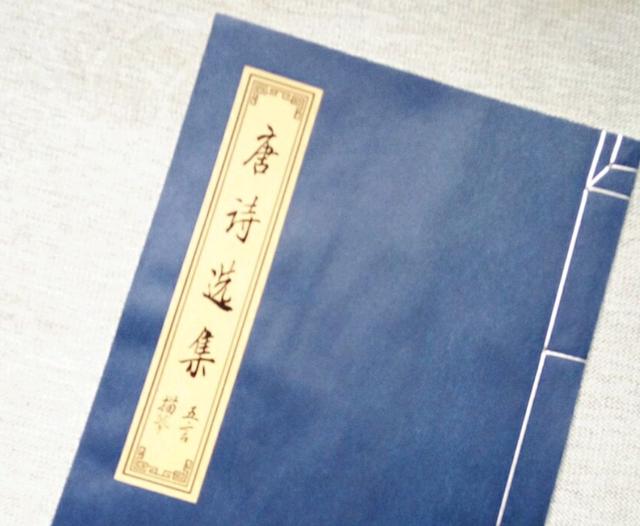 唐诗选集
五言
描